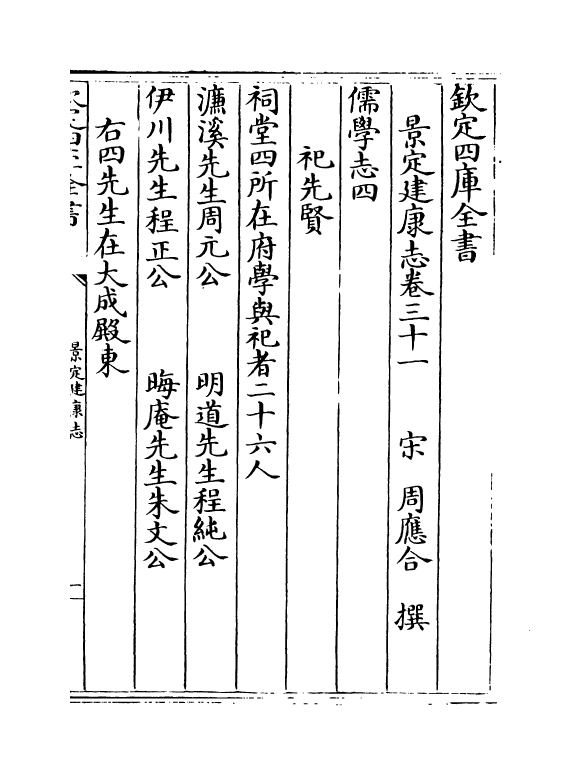 欽定四庫全書
景定建康志卷三十一 宋 周應合 撰
儒學志四
祀先賢
祠堂四所在府學與祀者二十六人
濂溪先生周元公 明道先生程純公
伊川先生程正公 晦庵先生朱文公
右四先生在大成殿東
景定建康志